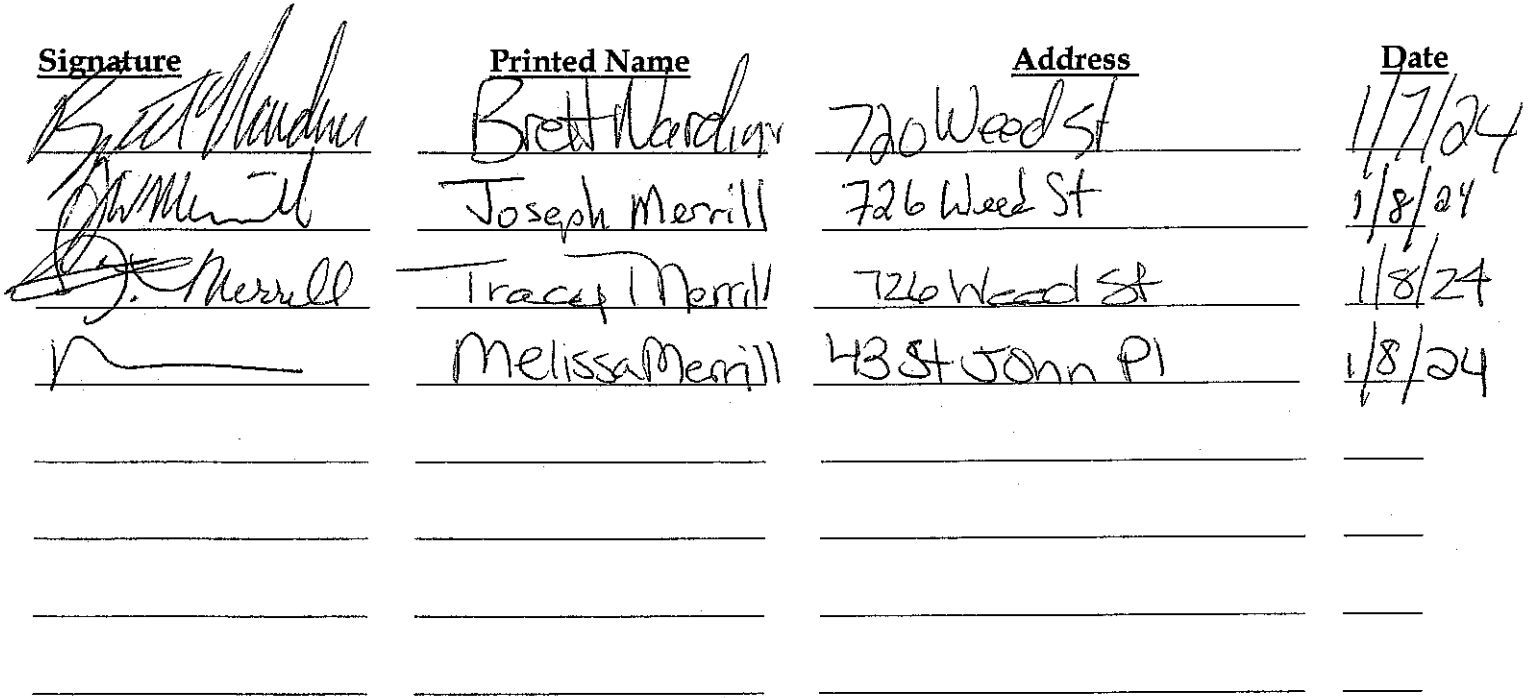 Signature Printed Name Address Date
Brett Wardian 720 Weed St 1/7/24
JWMerrill Joseph Merrill 726 Weed St 1/8/24
Merrill Tracey Merrill 726 Weed St 1/8/24
Melissa Merrill 43 St John Pl 1/8/24